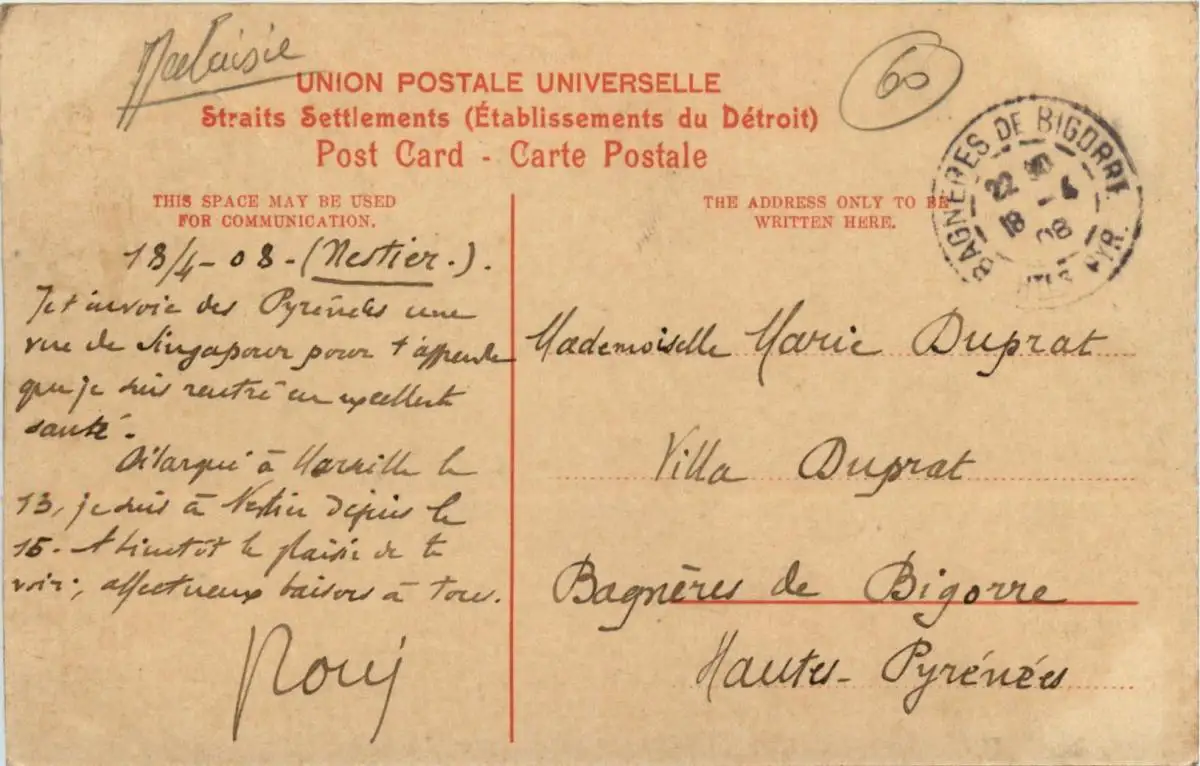 Malaisie
60
UNION POSTALE UNIVERSELLE
Straits Settlements (Établissements du Détroit)
Post Card - Carte Postale
THIS SPACE MAY BE USED
FOR COMMUNICATION.
THE ADDRESS ONLY TO BE
WRITTEN HERE.
BAGNERES DE BIGORRE
22 30
18 - 4
08
HTES PYR.
18/4-08-(Nestier.).
Je t'envoie des Pyrénées une
vue de Singapour pour t'apprendre
que je suis rentré en excellente
santé.
Débarqué à Marseille le
13, je suis à Nestier depuis le
15. A bientôt le plaisir de te
voir; affectueux baisers à tous.
Mademoiselle Marie Duprat
Villa Duprat
Bagnères de Bigorre
Hautes-Pyrénées